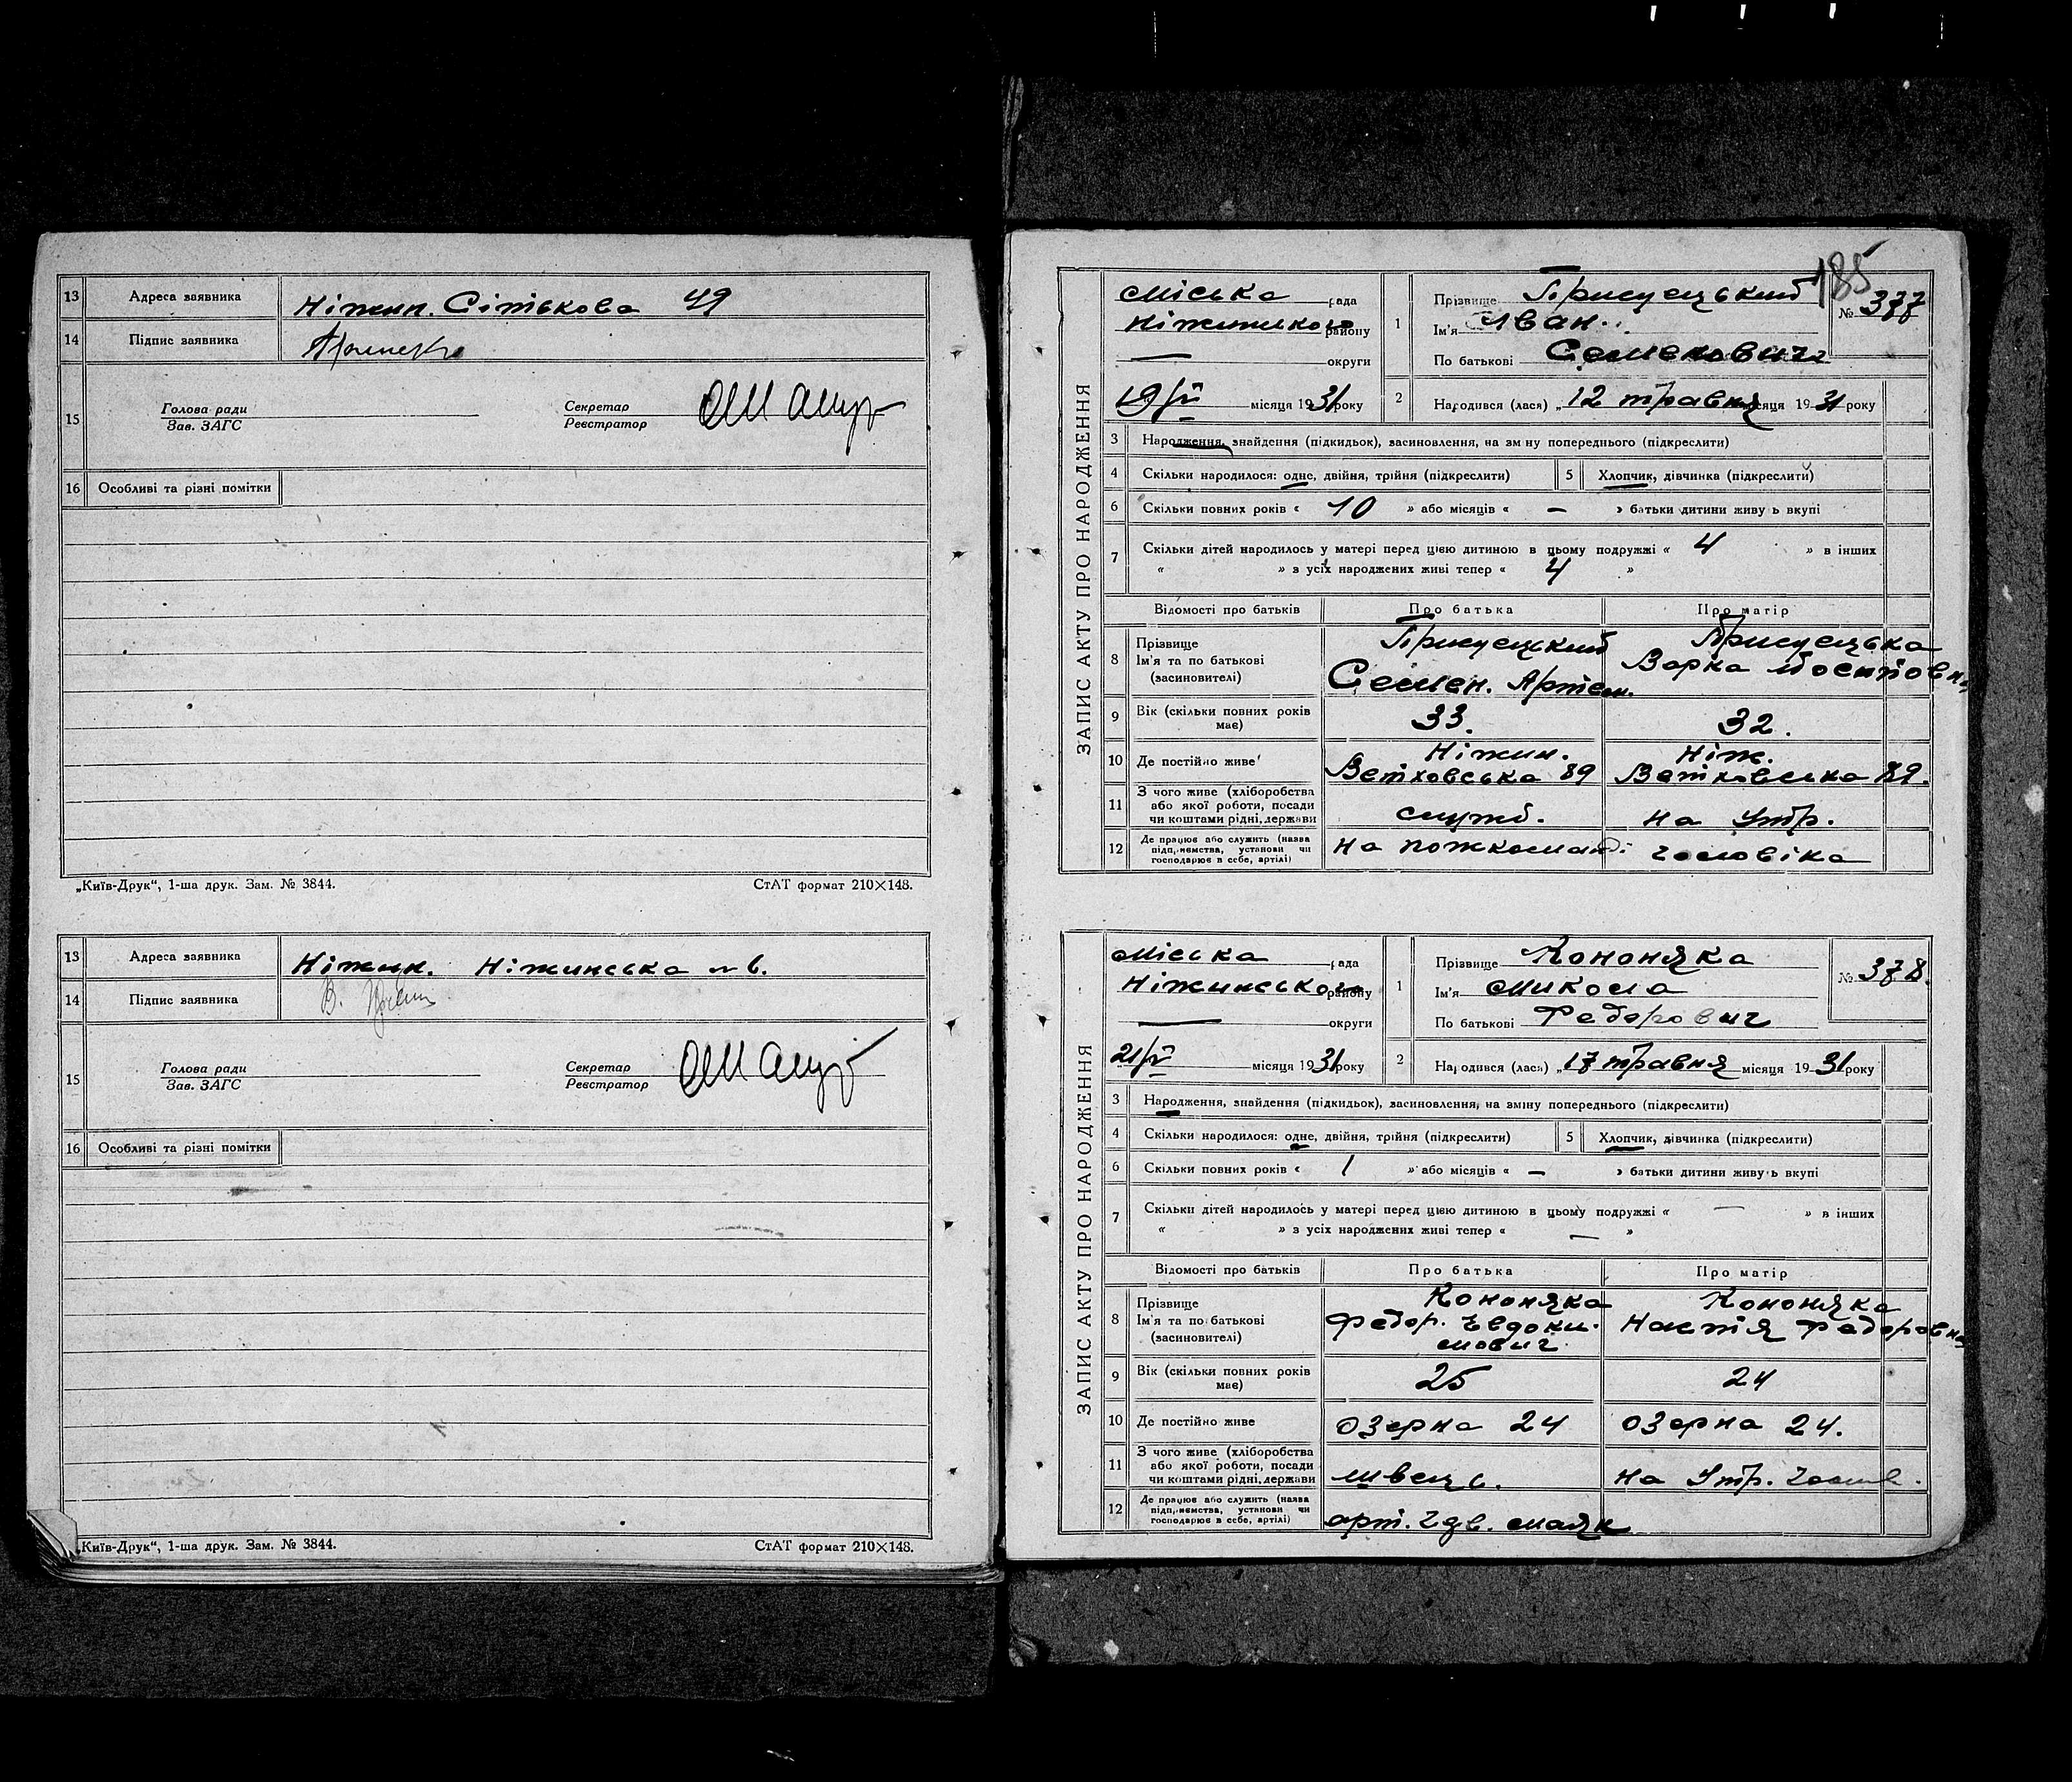 13 Адреса заявника Ніжин. Сітькова 49
14 Підпис заявника
15 Голова ради
Зав. ЗАГС
Секретар
Реєстратор
16 Особливі та різні помітки
„Київ-Друк“, 1-ша друк. Зам. № 3844. СтАТ формат 210×148.
13 Адреса заявника Ніжин. Ніжинська № 6.
14 Підпис заявника В.
15 Голова ради
Зав. ЗАГС
Секретар
Реєстратор
16 Особливі та різні помітки
„Київ-Друк“, 1-ша друк. Зам. № 3844. СтАТ формат 210×148.
185
ЗАПИС АКТУ ПРО НАРОДЖЕННЯ
Міська рада
Ніжинського району
— округи
19/V місяця 1931 року
1 Прізвище
Ім'я Іван
По батькові Семенович
№ 377
2 Народився (лася) „12 травня місяця 1931 року
3 Народження, знайдення (підкидьок), засиновлення, на зміну попереднього (підкреслити)
4 Скільки народилося: одне, двійня, трійня (підкреслити) 5 Хлопчик, дівчинка (підкреслити)
6 Скільки повних років « 10 » або місяців « — » батьки дитини живуть вкупі
7 Скільки дітей народилось у матері перед цією дитиною в цьому подружжі « 4 » в інших
« » з усіх народжених живі тепер « 4 »
Відомості про батьків Про батька Про матір
8 Прізвище
Ім'я та по батькові
(засиновителі)
Семен. Артем.
Варка
9 Вік (скільки повних років має) 33. 32.
10 Де постійно живе Ніжин. Ветховська 89 Ніж. Ветховська 89.
11 З чого живе (хліборобства або якої роботи, посади чи коштами рідні, держави служб. на утр.
12 Де працює або служить (назва підприємства, установи чи господарює в себе, артілі) на пожкоманді чоловіка
ЗАПИС АКТУ ПРО НАРОДЖЕННЯ
Міська рада
Ніжинського району
— округи
21/V місяця 1931 року
1 Прізвище Кононяка
Ім'я Микола
По батькові Федорович
№ 378.
2 Народився (лася) „17 травня місяця 1931 року
3 Народження, знайдення (підкидьок), засиновлення, на зміну попереднього (підкреслити)
4 Скільки народилося: одне, двійня, трійня (підкреслити) 5 Хлопчик, дівчинка (підкреслити)
6 Скільки повних років « 1 » або місяців « — » батьки дитини живуть вкупі
7 Скільки дітей народилось у матері перед цією дитиною в цьому подружжі « — » в інших
« » з усіх народжених живі тепер « — »
Відомості про батьків Про батька Про матір
8 Прізвище Кононяка Кононяка
Ім'я та по батькові Федор. Евдоки- Настя Федоровна
(засиновителі) мович
9 Вік (скільки повних років має) 25 24
10 Де постійно живе Озерна 24 Озерна 24.
11 З чого живе (хліборобства або якої роботи, посади чи коштами рідні, держави швець. на утр. чолов.
12 Де працює або служить (назва підприємства, установи чи господарює в себе, артілі) арт. маяк